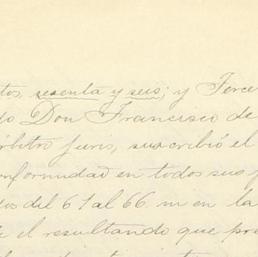 tos, sesenta y seis; y Terce
lo Don Francisco de
árbitro juris, suscribió el
onformidad en todos sus p
os del 61 al 66 m en la
e el resultando que pro